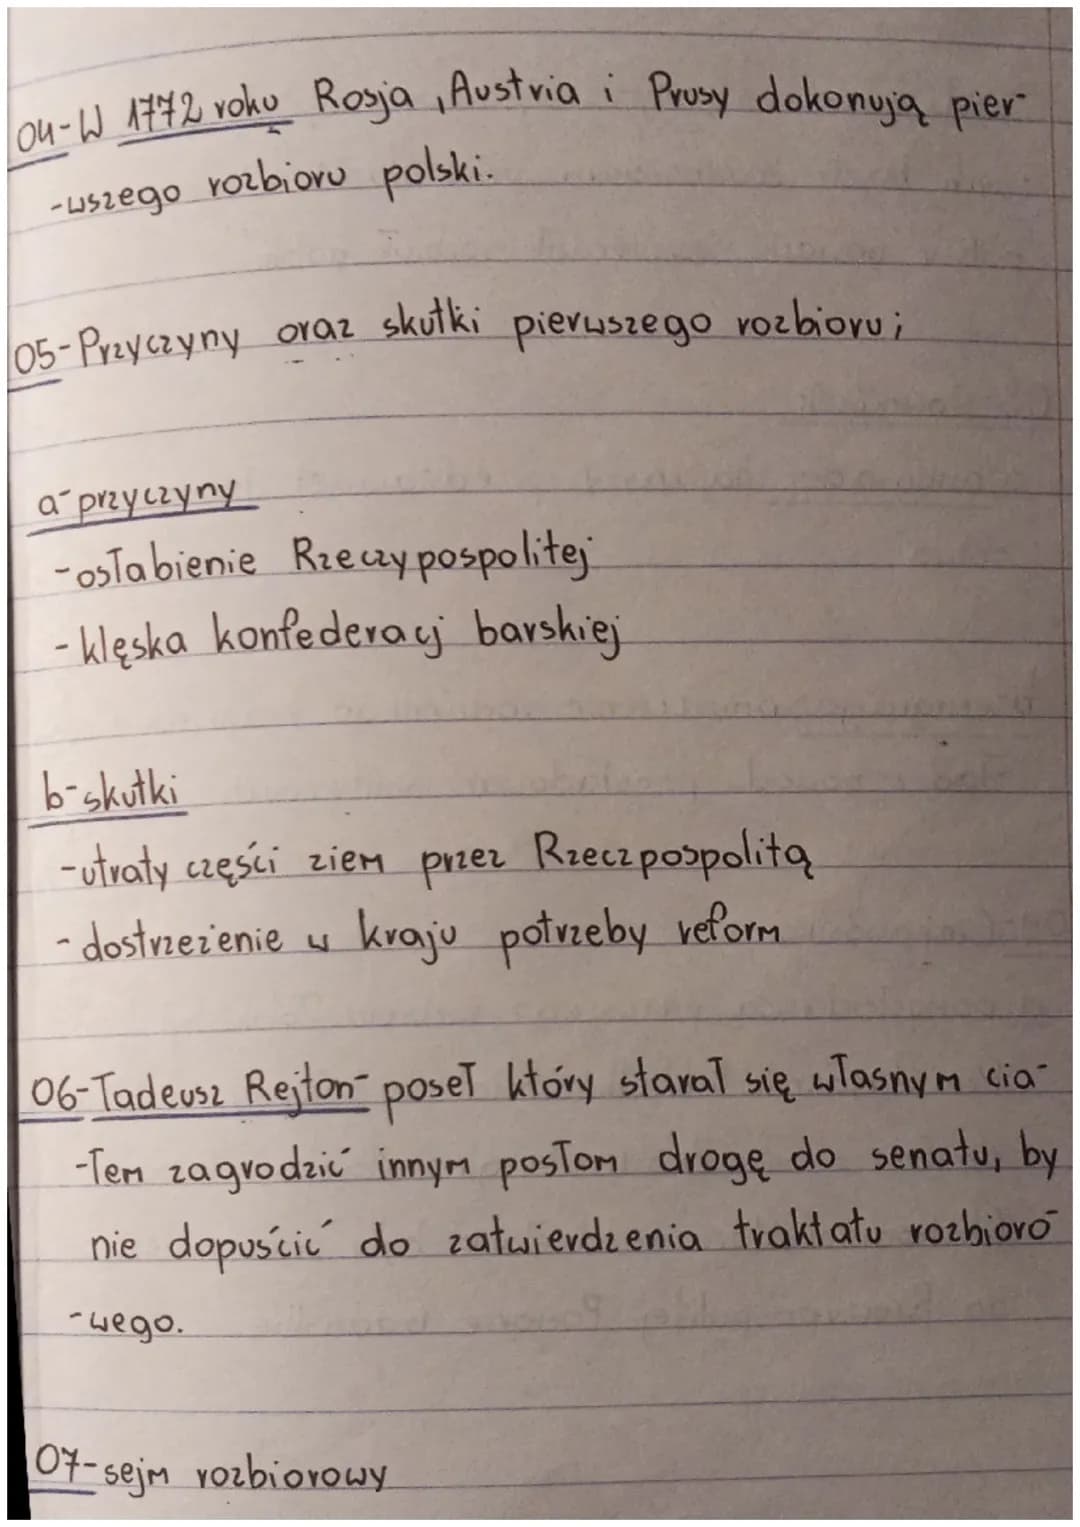 04-W 1772 roku Rosja, Austria i Prusy dokonują pier-
-wszego rozbioru polski.
05-Przyczyny oraz skutki pierwszego rozbioru;
a-przyczyny
-osłabienie Rzeczypospolitej
-klęska konfederacj barskiej
b-skutki
-utraty części ziem przez Rzeczpospolitą
-dostrzeżenie w kraju potrzeby reform
06-Tadeusz Rejton- poseł który starał się własnym cia-
-łem zagrodzić innym posłom drogę do senatu, by
nie dopuścić do zatwierdzenia traktatu rozbioro-
-wego.
07-sejm rozbiorowy